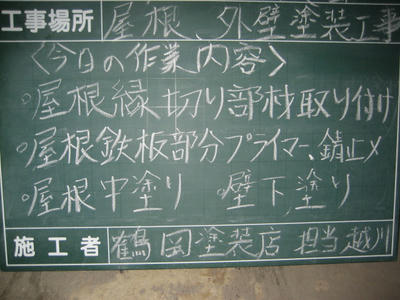 工事場所 屋根、外壁塗装工事
〈今日の作業内容〉
◦屋根縁切り部材取り付け
◦屋根鉄板部分プライマー、錆止メ
◦屋根中塗り ◦壁下塗り
施工者 鶴岡塗装店 担当越川